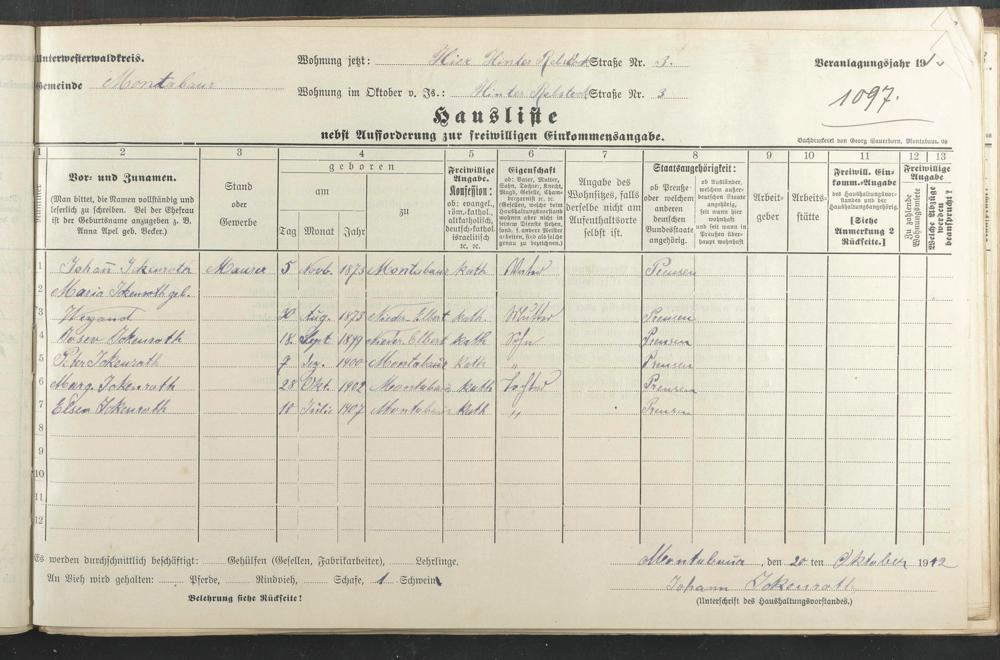 Unterwesterwaldkreis.
Gemeinde Montabaur
Wohnung jetzt: Hier Hinter Rebstock Straße Nr. 3.
Wohnung im Oktober v. Js.: Hinter Rebstock Straße Nr. 3
Veranlagungsjahr 191
1097.
Hausliste
nebst Aufforderung zur freiwilligen Einkommensangabe.
Buchdruckerei von Georg Sauerborn, Montabaur. 08
1 2 3 4 5 6 7 8 9 10 11 12 13
Nummer
Vor- und Zunamen.
(Man bittet, die Namen vollständig und
leserlich zu schreiben. Bei der Ehefrau
ist der Geburtsname anzugeben z. B.
Anna Apel geb. Becker.)
Stand
oder
Gewerbe
geboren
am
zu
Tag Monat Jahr
Freiwillige
Angabe.
Konfession:
ob: evangel.,
röm.-kathol.,
altkatholisch,
deutsch-kathol.
israelitisch
ec. ec.
Eigenschaft
ob: Vater, Mutter,
Sohn, Tochter, Knecht,
Magd, Geselle, Cham-
bregarnist ec. ec.
Angabe des
Wohnsitzes, falls
derselbe nicht am
Aufenthaltsorte
selbst ist.
Staatsangehörigkeit:
ob Preuße
oder welchem
anderen
Bundesstaate
angehörig.
ob Ausländer,
welchem außer-
deutschen Staate
angehörig,
seit wann hier
wohnhaft
und seit wann in
Preußen über-
haupt wohnhaft
Arbeit-
geber
Arbeits-
stätte
Freiwill. Ein-
komm.-Angabe
des Haushaltungsvor-
standes und der
Haushaltungsangehörig.
[Siehe
Anmerkung 2
Rückseite.]
Freiwillige
Angabe
Zu zahlende
Wohnungsmiete
Welche Abzüge
werden
beansprucht?
1 Johann Ickenroth Maurer 5 Novb. 1873 Montabaur kath Vater Preusen
2 Maria Ickenroth geb.
3 Weyand 30 Aug. 1875 Nieder-Elbert kath. Mutter Preusen
4 Josev Ickenroth 18. Sept 1899 Nieder Elbert kath Sohn Preusen
5 Peter Ickenroth 7 Dez. 1900 Montabaur kath „ Preusen
6 Marg. Ickenroth 28 Okt. 1902 Montabaur kath Tochter Preusen
7 Elsen Ickenroth 18 Julie 1907 Montabaur kath „ Preusen
8
9
10
11
12
Es werden durchschnittlich beschäftigt: Gehülfen (Gesellen, Fabrikarbeiter), Lehrlinge.
An Vieh wird gehalten: Pferde, Rindvieh, Schafe, 1 Schwein,
Belehrung siehe Rückseite!
Montabaur, den 20 ten Oktober 1912
Johann Ickenroth
(Unterschrift des Haushaltungsvorstandes.)